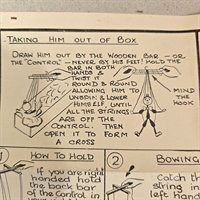 TAKING HIM OUT OF BOX
DRAW HIM OUT BY THE WOODEN BAR - OR
THE "CONTROL" - NEVER BY HIS FEET! HOLD THE
BAR IN BOTH
HANDS &
TWIST IT
ROUND & ROUND
ALLOWING HIM TO
UNWIND & LOWER
HIMSELF, UNTIL
ALL THE STRINGS
ARE OFF THE
CONTROL. THEN
OPEN IT TO FORM
A CROSS
MIND
THE
HOOK
1 HOW TO HOLD
If you are right
handed hold
the back bar
of the Control in
2 BOWING
Catch th
string in
left hand